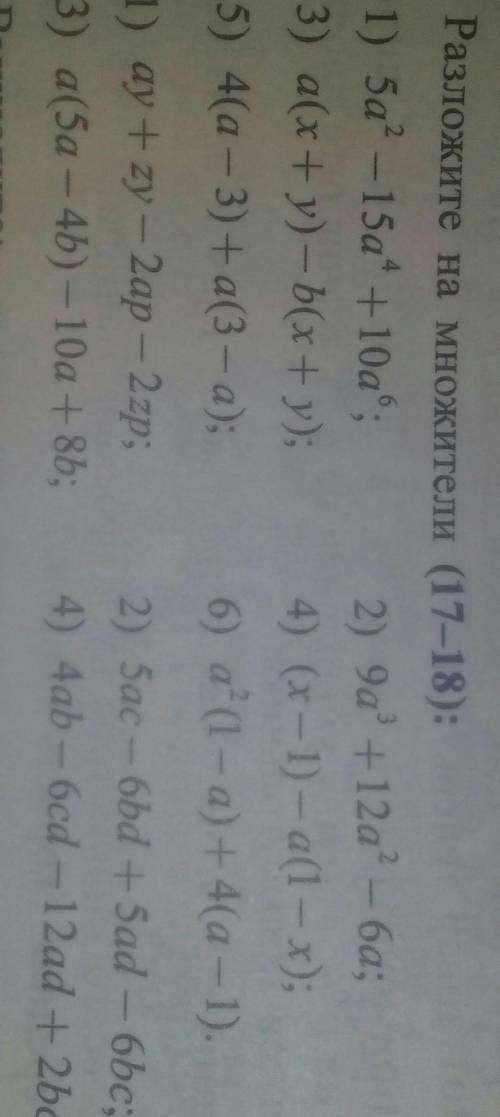 Разложите на множители (17–18):
1) 5a² – 15a⁴ + 10a⁶; 2) 9a³ + 12a² – 6a;
3) a(x + y) – b(x + y); 4) (x – 1) – a(1 – x);
5) 4(a – 3) + a(3 – a); 6) a²(1 – a) + 4(a – 1).
1) ay + zy – 2ap – 2zp; 2) 5ac – 6bd + 5ad – 6bc;
3) a(5a – 4b) – 10a + 8b; 4) 4ab – 6cd – 12ad + 2bc